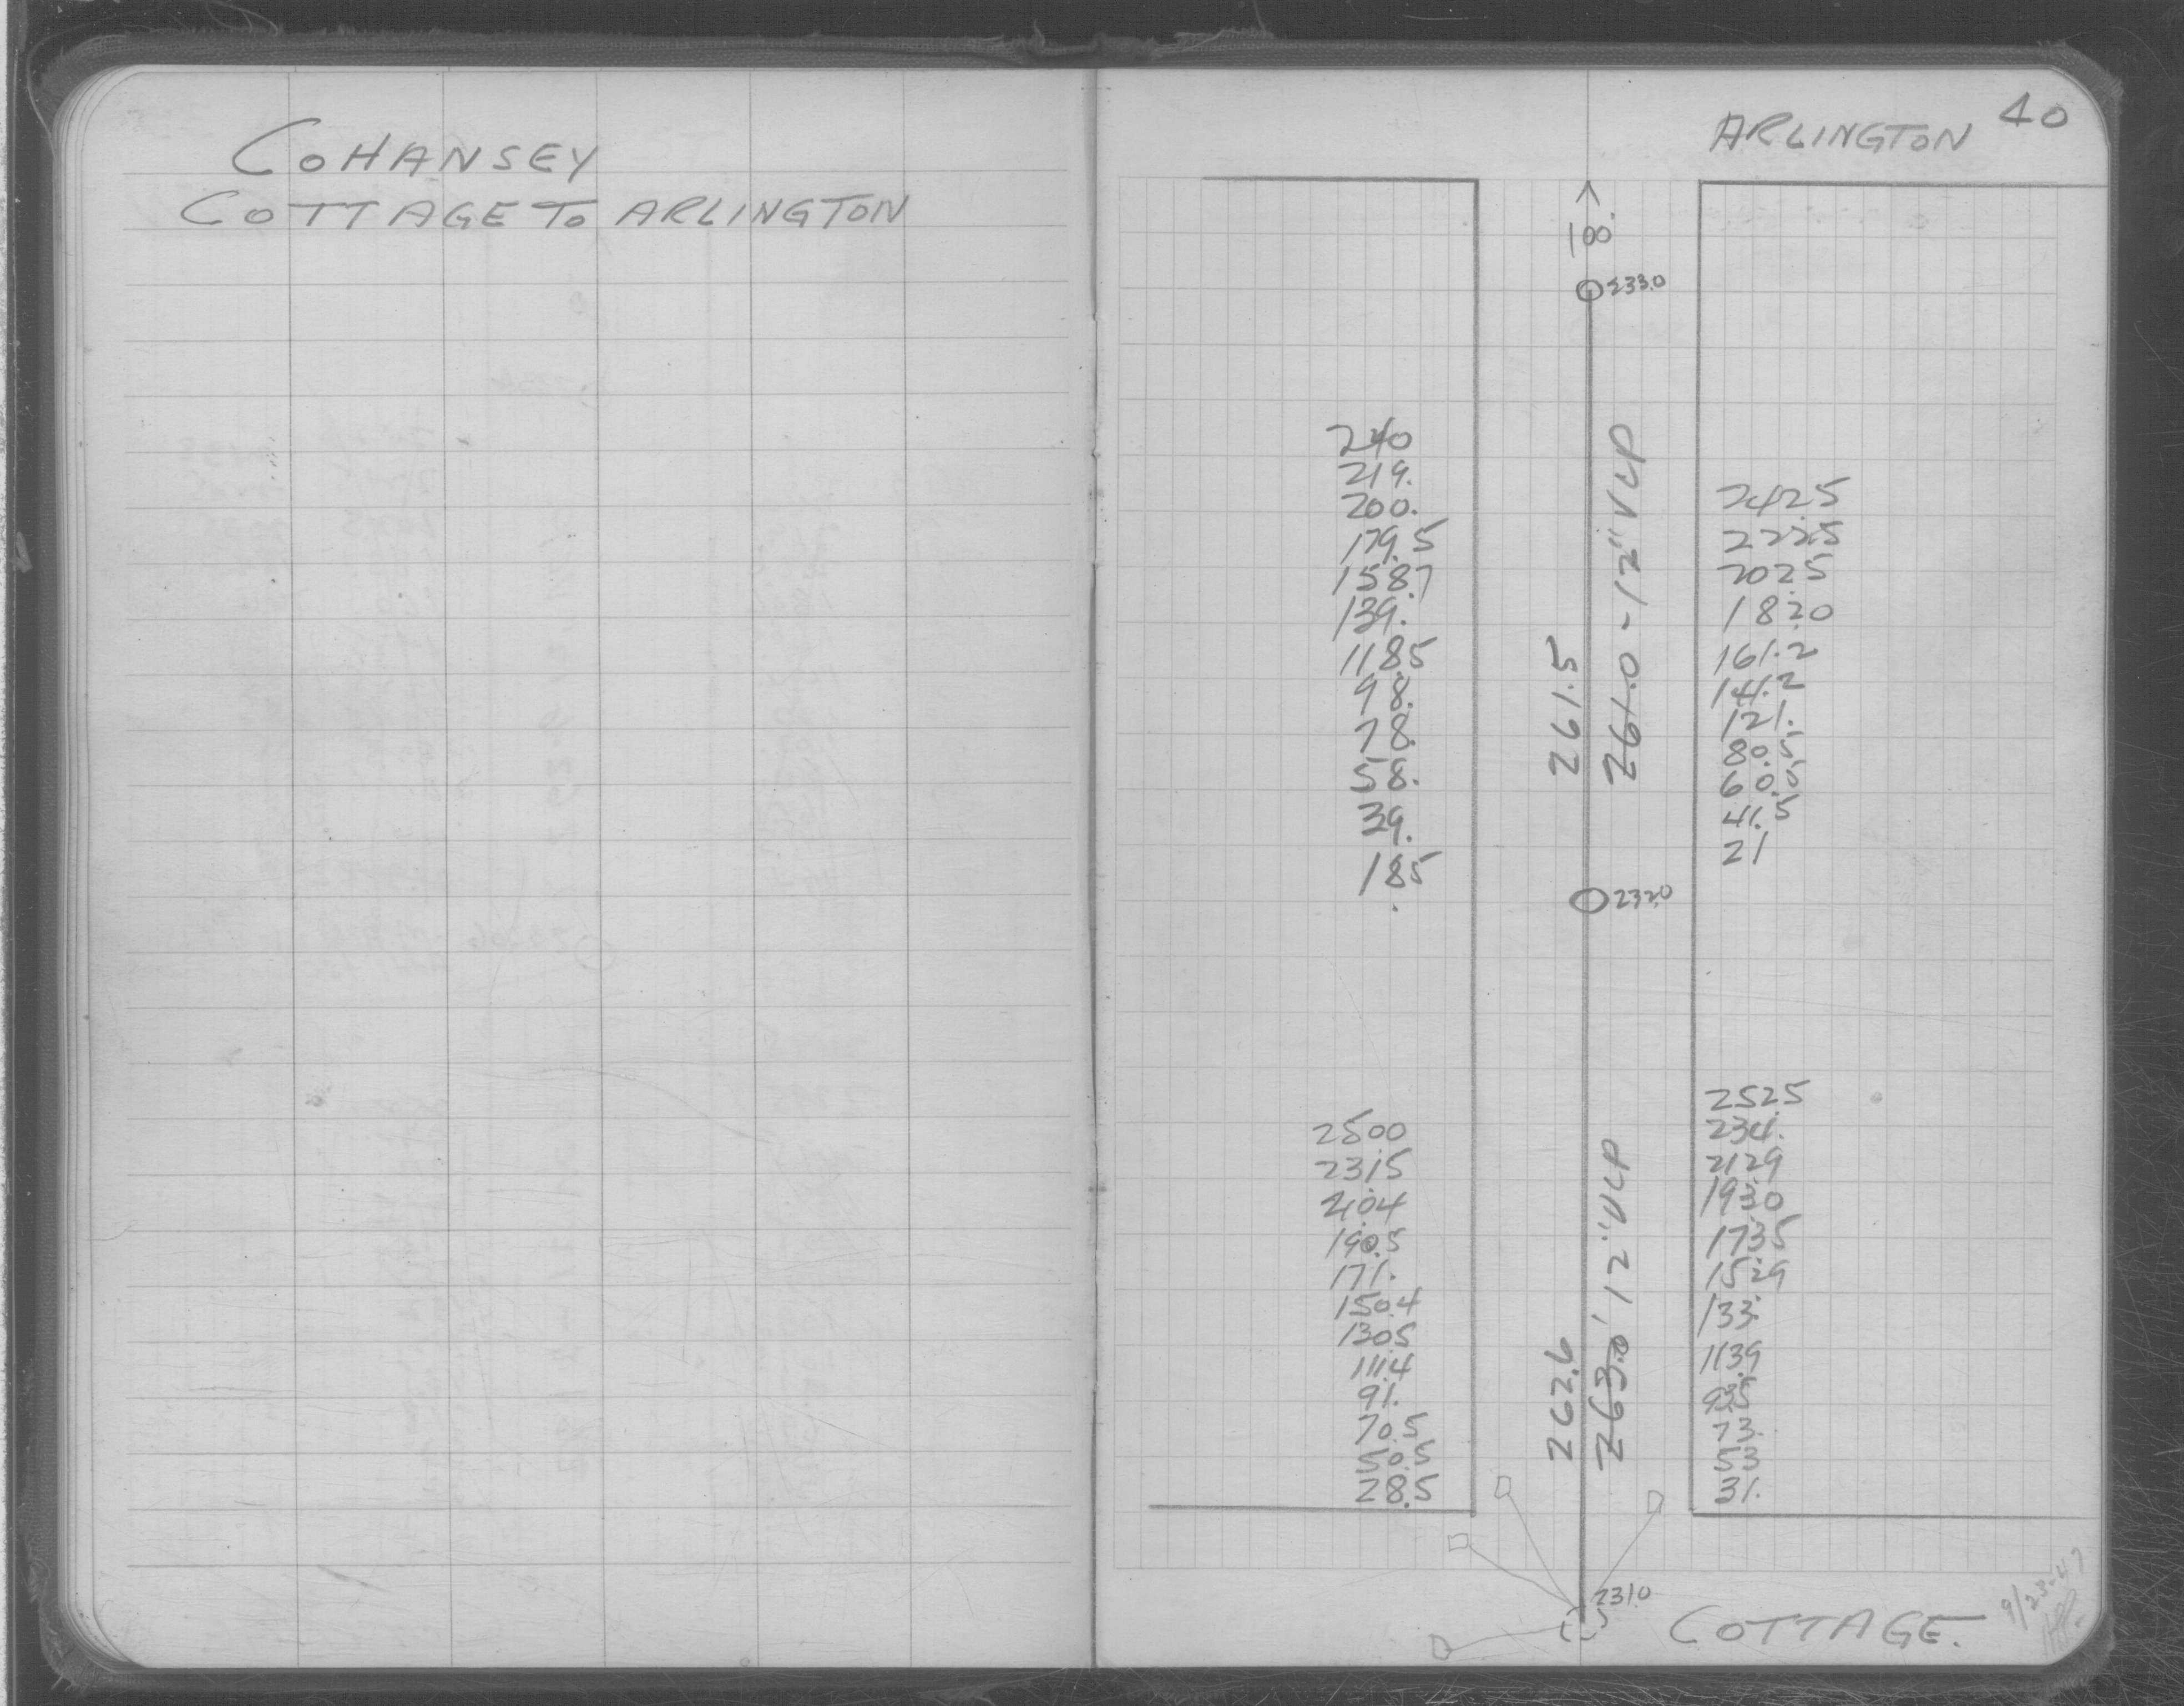 COHANSEY
COTTAGE TO ARLINGTON
40
ARLINGTON
100.
233.0
240
219.
200.
179.5
158.7
139.
118.5
98.
78.
58.
39.
18.5
261.5
261.0 - 12" VCP
242.5
222.5
202.5
182.0
161.2
141.2
121.
80.5
60.5
41.5
21
232.0
250.0
231.5
210.4
190.5
171.
150.4
130.5
111.4
91.
70.5
50.5
28.5
262.6
263.0' 12" VCP
252.5
234.
212.9
193.0
173.5
152.9
133.
113.9
93.5
73.
53
31.
231.0
COTTAGE.
9/23-47